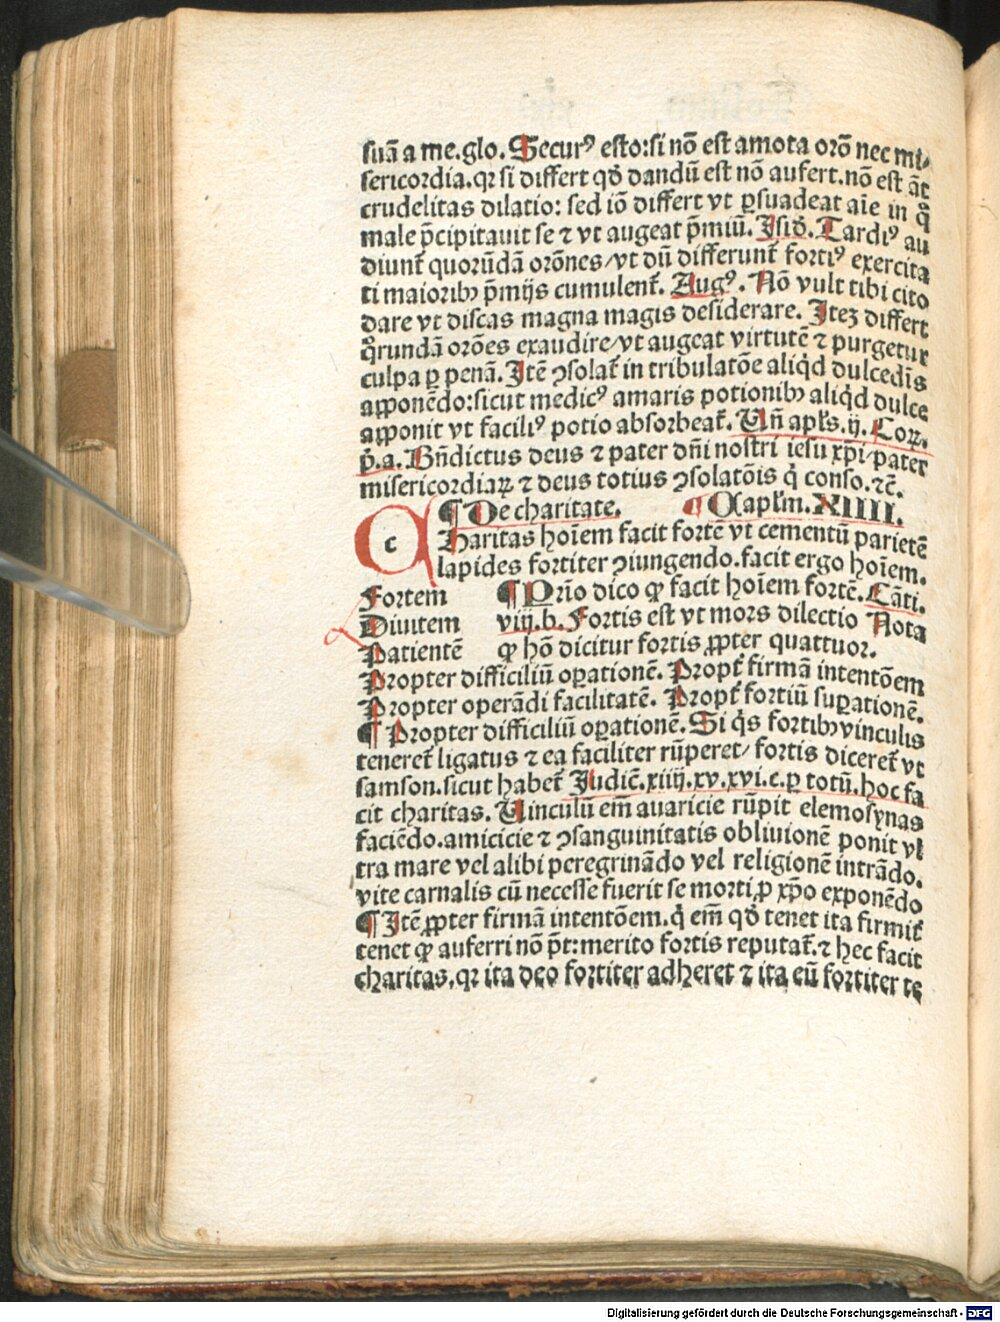 suā a me.glo.Securꝰ esto:si nō est amota orō nec mi⸗
sericordia.qꝛ si differt qd̓ dandū est nō aufert.nō est āt
crudelitas dilatio: sed iō differt vt ꝑsuadeat aīe in q̊
male p̄cipitauit se ⁊ vt augeat p̄miū. Isid̓. Tardiꝰ au
diunt̄ quorūdā orōnes/vt dū differunt̄ fortiꝰ exercita
ti maioribꝫ p̄mijs cumulent̄. Augꝰ. Nō vult tibi cito
dare vt discas magna magis desiderare. Iteꝫ differt
q̊rundā orōes exaudire/vt augeat virtutē ⁊ purgetur
culpa ꝑ penā. Itē ꝯsolat̄ in tribulatōe aliqd̓ dulcedīs
apponēdo:sicut medicꝰ amaris potionibꝫ aliqd̓ dulce
apponit vt faciliꝰ potio absorbeat̄. Vn̄ apl̓s.ij. Coꝝ.
p̓.a. Bn̄dictus deus ⁊ pater dn̄i nostri iesu xp̄i/pater
misericordiaꝝ ⁊ deus totius ꝯsolatōis q̓ conso.⁊c̄.
¶ De charitate. ¶ Capl̓m. XIIII.
c
Haritas hoīem facit fortē vt cementū parietē
lapides fortiter ꝯiungendo.facit ergo hoīem.
Fortem ¶ Prīo dico ꝙ facit hoīem fortē. Cāti.
Diuitem viij.b. Fortis est vt mors dilectio Nota
Patientē ꝙ hō dicitur fortis ꝓpter quattuor.
Propter difficiliū oꝑationē. Propt̓ firmā intentōem
Propter operādi facilitatē. Propt̓ fortiū suꝑationē.
¶ Propter difficiliū oꝑationē. Si q̓s fortibꝫ vinculis
teneret̄ ligatus ⁊ ea faciliter rūperet/ fortis diceret̄ vt
samson.sicut habet̄ Iudic̄.xiiij.xv.xvi.c.ꝑ totū.hoc fa
cit charitas. Vinculū em̄ auaricie rūpit elemosynas
faciēdo.amicicie ⁊ ꝯsanguinitatis obliuionē ponit vl
tra mare vel alibi peregrinādo vel religionē intrādo.
vite carnalis cū necesse fuerit se morti ꝓ xp̄o exponēdo
¶ Itē ꝓpter firmā intentōem.q̓ em̄ qd̓ tenet ita firmit̓
tenet ꝙ auferri nō p̄t:merito fortis reputat̄.⁊ hec facit
charitas.qꝛ ita deo fortiter adheret ⁊ ita eū fortiter te
Digitalisierung gefördert durch die Deutsche Forschungsgemeinschaft - DFG